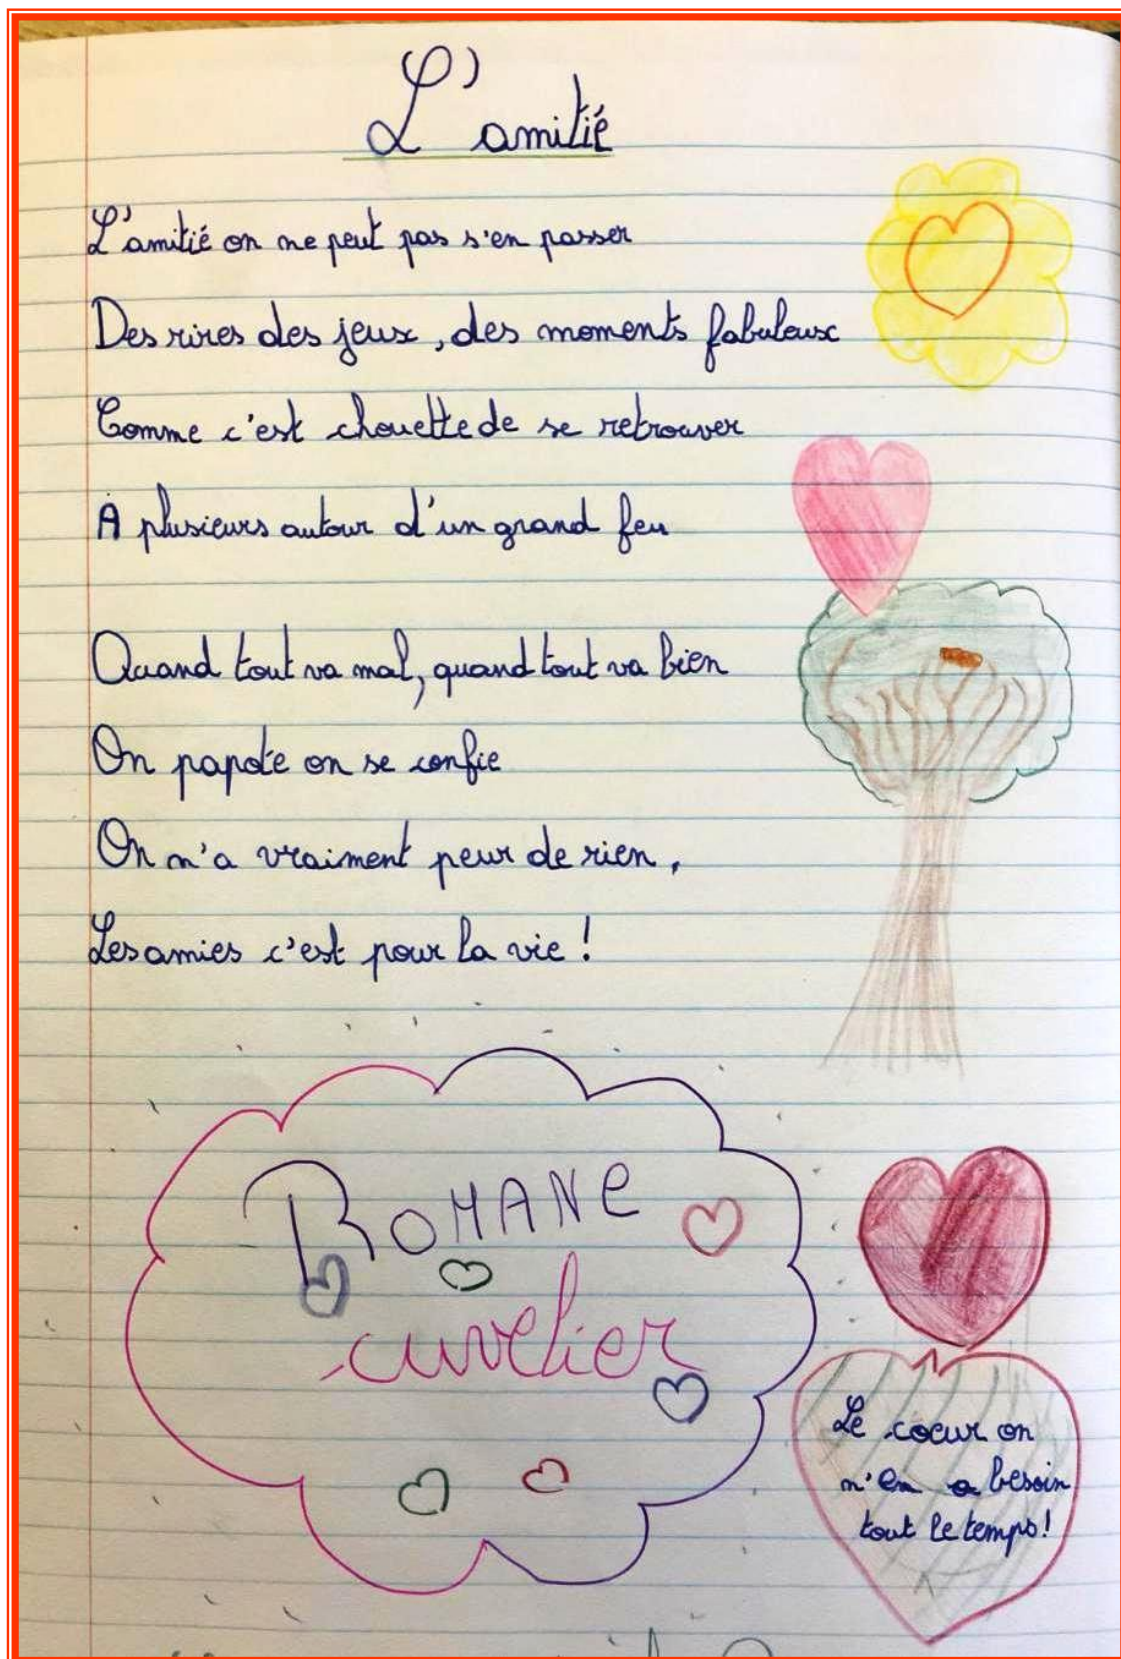 L'amitié
L'amitié on ne peut pas s'en passer
Des rires des jeux, des moments fabuleux
Comme c'est chouette de se retrouver
A plusieurs autour d'un grand feu
Quand tout va mal, quand tout va bien
On papote on se confie
On n'a vraiment peur de rien,
Les amies c'est pour la vie !
ROMANE
cuvelier
Le coeur on
n'en a besoin
tout le temps!